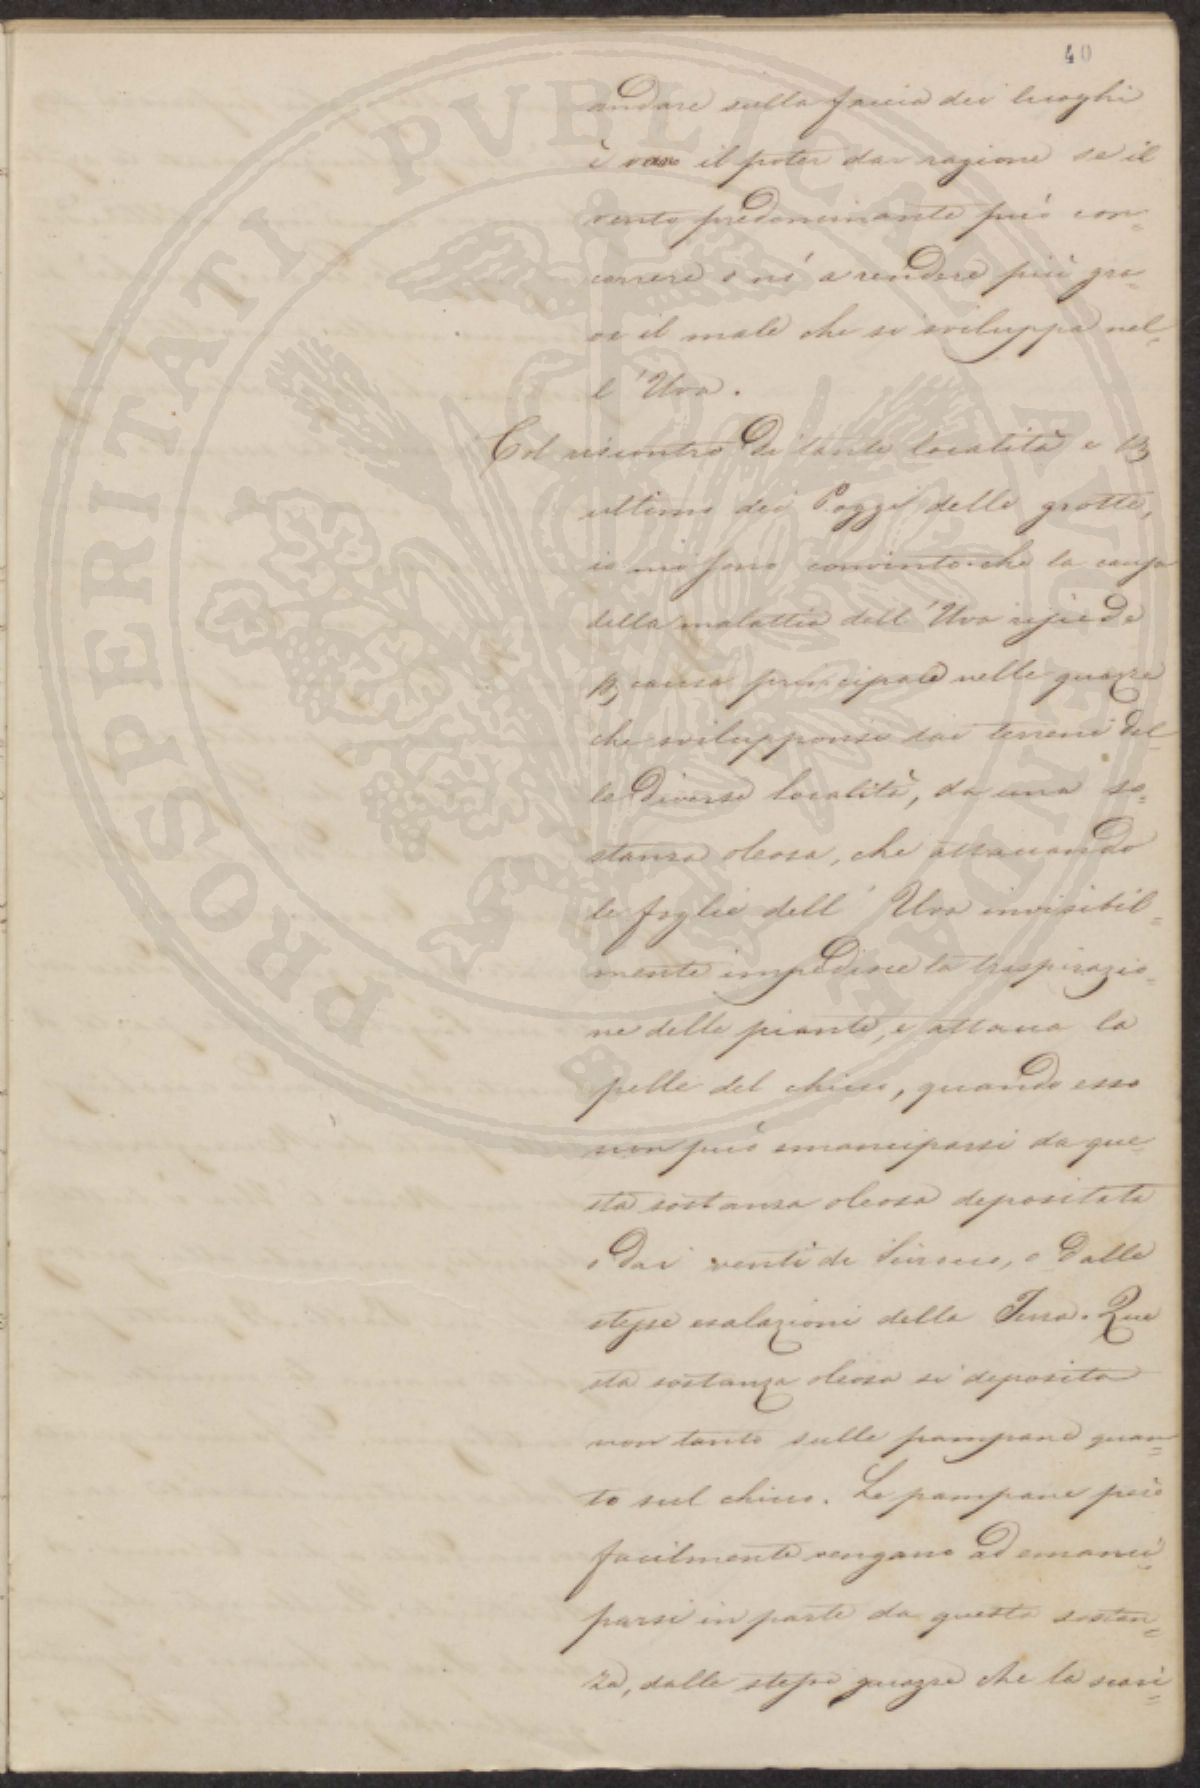 40
andare sulla faccia dei luoghi
è vano il poter dar ragione se il
vento predominante può con=
correre o nò a rendere più gra=
ve il male che si sviluppa nel=
l'Uva.
Col riscontro di tante località e p
ultimo dei Poggi delle grotte,
io mi sono convinto che la causa
della malattia dell'Uva risiede
p causa principale nelle guazze
che sviluppansi dai terreni del=
le diverse località, da una so=
stanza oleosa, che attaccando
le foglie dell'Uva invisibil=
mente impedisce la traspirazio=
ne delle piante, e attacca la
pelle del chicco, quando esso
non può emanciparsi da que=
sta sostanza oleosa depositata
o dai venti di Scirocco, o dalle
stesse esalazioni della Terra. Que
sta sostanza oleosa si deposita
non tanto sulle pampane quan=
to sul chicco. Le pampane però
facilmente vengano ad emanci=
parsi in parte da questa sostan=
za, dalle stesse guazze che la scari=
PROSPERITATI PVBLICAE AVGENDAE